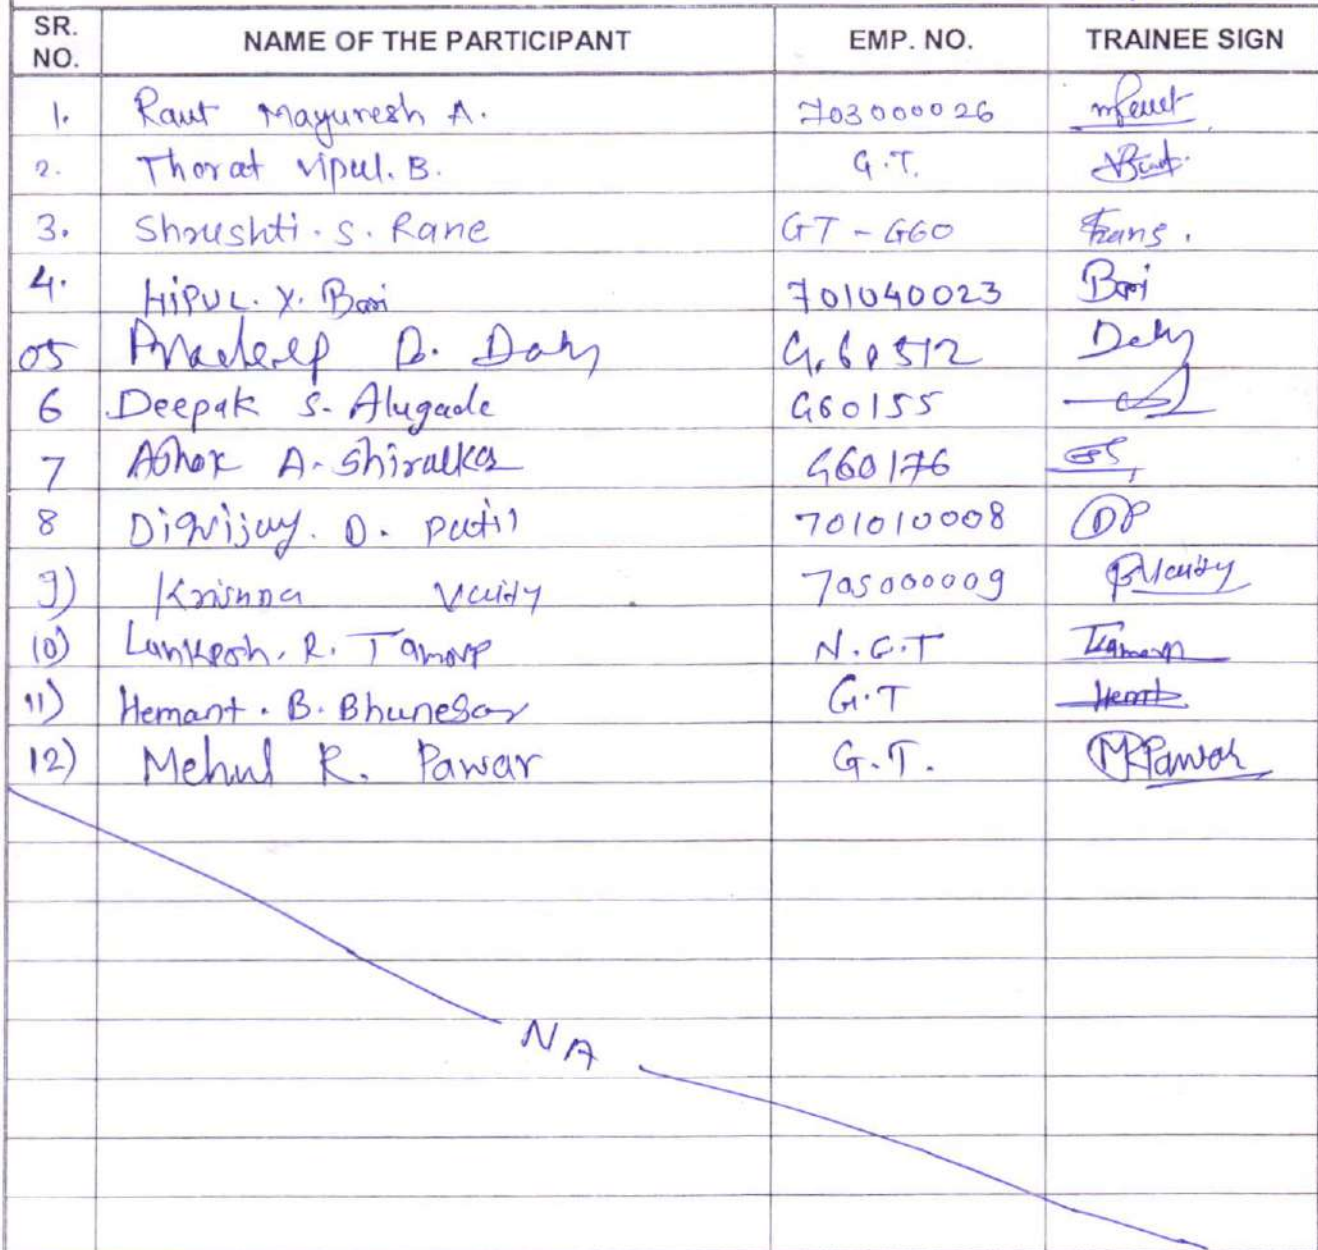 SR. NO. NAME OF THE PARTICIPANT EMP. NO. TRAINEE SIGN
1. Raut Mayuresh A. 703000026
2. Thorat Vipul. B. G.T.
3. Shrushti. S. Rane GT - G60
4. HIPUL. Y. Bari 701040023 Bari
05 D. G.60512
6 Deepak S. Alugade G60155
7 Ashok A. Shiralkar G60176
8 Digvijay. D. Patil 701010008 DP
9) Krishna Vaidy 705000009
10) Lankesh. R. N.G.T
11) Hemant. B. G.T Hemt
12) Mehul R. Pawar G.T. MRPawar
NA